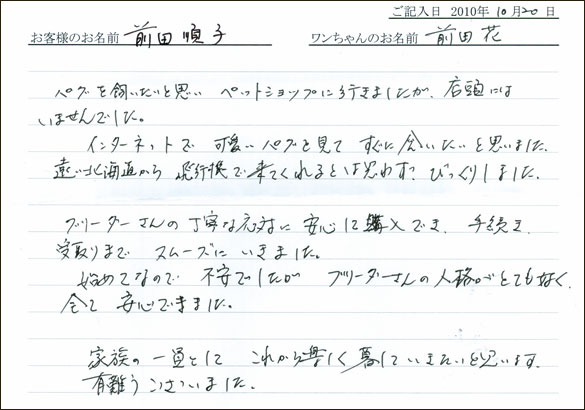 ご記入日 2010年 10月20日
お客様のお名前 前田順子 ワンちゃんのお名前 前田花
パグを飼いたいと思い ペットショップに行きましたが、店頭には
いませんでした。
インターネットで 可愛いパグを見て すぐに会いたいと思いました。
遠い北海道から 飛行機で来てくれるとは思わず? びっくりしました。
ブリーダーさんの丁寧な応対に 安心して購入でき、手続き、
受取りまで スムーズにいきました。
始めてなので 不安でしたが ブリーダーさんの人格がとてもよく、
全て 安心できました。
家族の一員として これから楽しく暮していきたいと思います。
有難うございました。